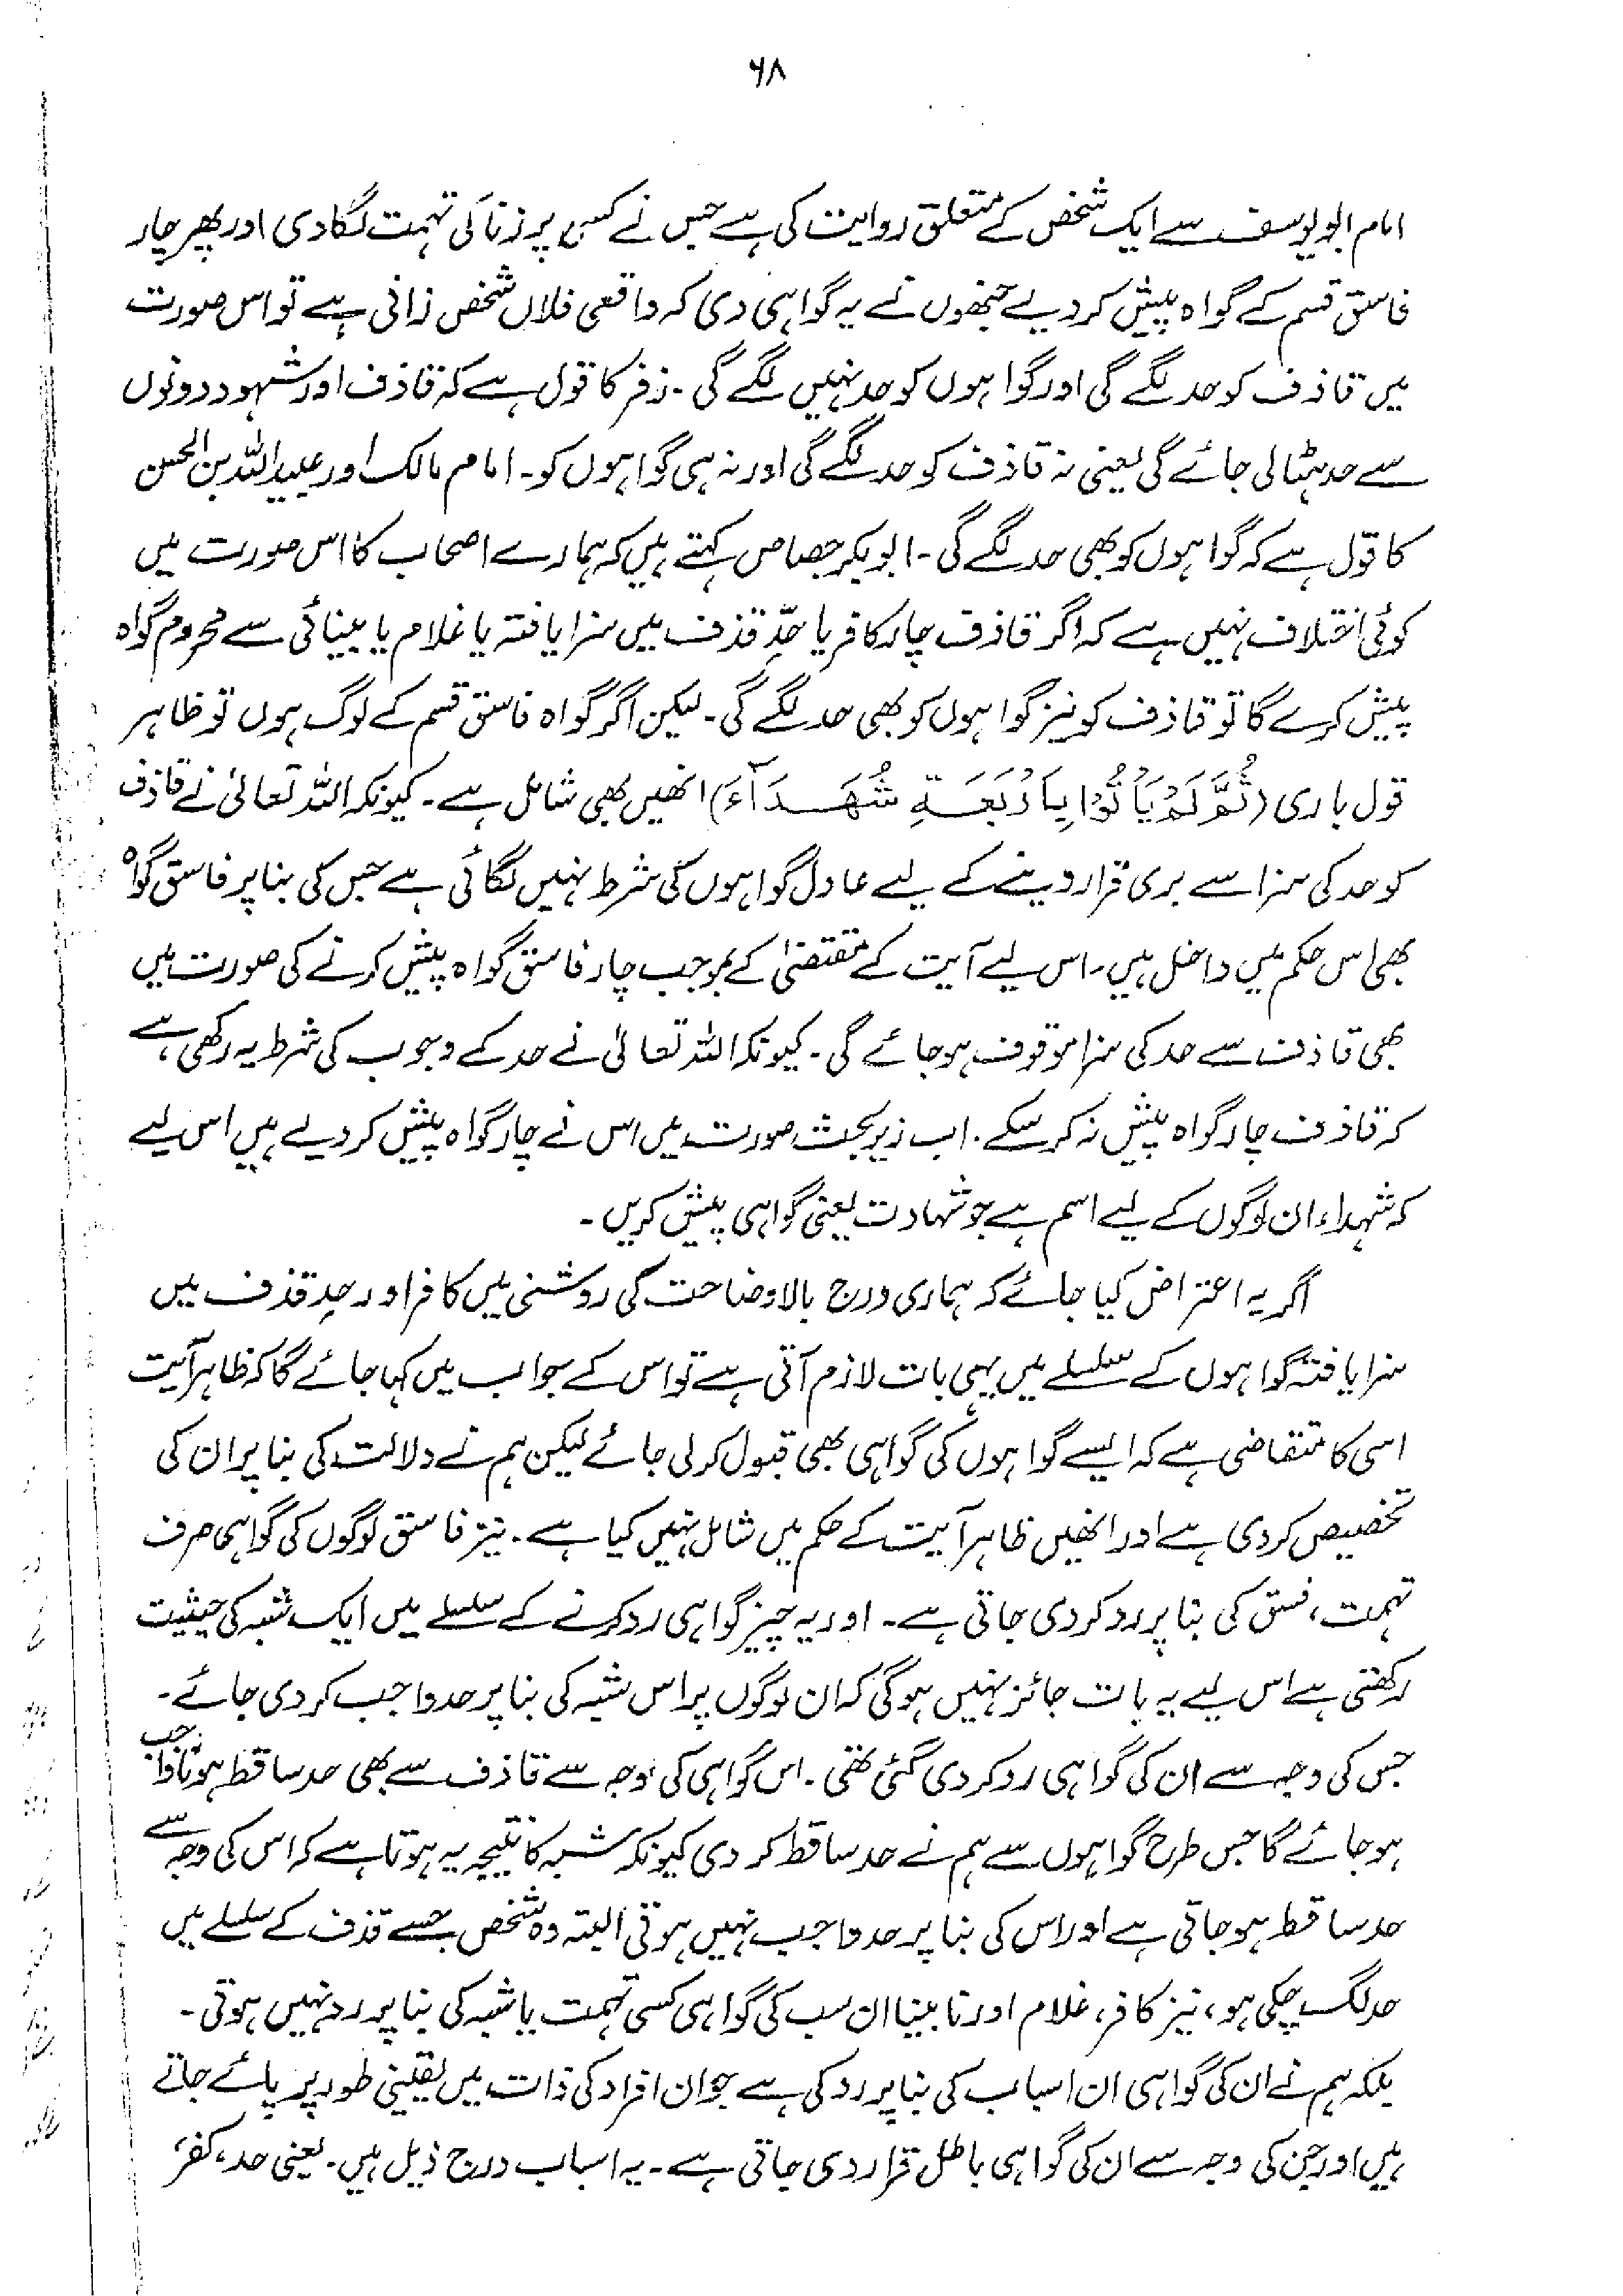 ۶۸
امام ابو یوسف سے ایک شخص کے متعلق روایت کی ہے جس نے کسی پر زنا کی تہمت لگا دی اور پھر چار
فاسق قسم کے گواہ پیش کر دیے جنھوں نے یہ گواہی دی کہ واقعی فلاں شخص زانی ہے تو اس صورت
میں قاذف کو حد لگے گی اور گواہوں کو حد نہیں لگے گی۔ زفر کا قول ہے کہ قاذف اور شہود دونوں
سے حد ہٹالی جائے گی یعنی نہ قاذف کو حد لگے گی اور نہ ہی گواہوں کو۔ امام مالک اور عبید اللہ بن الحسن
کا قول ہے کہ گواہوں کو بھی حد لگے گی۔ ابو بکر جصاص کہتے ہیں کہ ہمارے اصحاب کا اس صورت میں
کوئی اختلاف نہیں ہے کہ اگر قاذف چار کافر یا حدِّ قذف میں سزا یافتہ یا غلام یا بینائی سے محروم گواہ
پیش کرے گا تو قاذف کو نیز گواہوں کو بھی حد لگے گی۔ لیکن اگر گواہ فاسق قسم کے لوگ ہوں تو ظاہر
قول باری (ثُمَّ لَمْ يَأْتُوْا بِأَرْبَعَةِ شُهَدَآءَ) انھیں بھی شامل ہے۔ کیونکہ اللہ تعالیٰ نے قاذف
کو حد کی سزا سے بری قرار دینے کے لیے عادل گواہوں کی شرط نہیں لگائی ہے جس کی بنا پر فاسق گواہ
بھی اس حکم میں داخل ہیں۔ اس لیے آیت کے مقتضیٰ کے بموجب چار فاسق گواہ پیش کرنے کی صورت میں
بھی قاذف سے حد کی سزا موقوف ہو جائے گی۔ کیونکہ اللہ تعالیٰ نے حد کے وجوب کی شرط یہ رکھی ہے
کہ قاذف چار گواہ پیش نہ کر سکے۔ اب زیر بحث صورت میں اس نے چار گواہ پیش کر دیے ہیں اس لیے
کہ شہداء ان لوگوں کے لیے اسم ہے جو شہادت یعنی گواہی پیش کریں۔
اگر یہ اعتراض کیا جائے کہ ہماری درج بالا وضاحت کی روشنی میں کافر اور حدِ قذف میں
سزا یافتہ گواہوں کے سلسلے میں یہی بات لازم آتی ہے تو اس کے جواب میں کہا جائے گا کہ ظاہر آیت
اسی کا متقاضی ہے کہ ایسے گواہوں کی گواہی بھی قبول کر لی جائے لیکن ہم نے دلالت کی بنا پر ان کی
تخصیص کر دی ہے اور انھیں ظاہر آیت کے حکم میں شامل نہیں کیا ہے۔ نیز فاسق لوگوں کی گواہی صرف
تہمت، فسق کی بنا پر رد کر دی جاتی ہے۔ اور یہ چیز گواہی رد کرنے کے سلسلے میں ایک شبہ کی حیثیت
رکھتی ہے اس لیے یہ بات جائز نہیں ہوگی کہ ان لوگوں پر اس شبہ کی بنا پر حد واجب کر دی جائے۔
جس کی وجہ سے ان کی گواہی رد کر دی گئی تھی۔ اس گواہی کی وجہ سے قاذف سے بھی حد ساقط ہونا واجب
ہو جائے گا جس طرح گواہوں سے ہم نے حد ساقط کر دی کیونکہ شبہ کا نتیجہ یہ ہوتا ہے کہ اس کی وجہ سے
حد ساقط ہو جاتی ہے اور اس کی بنا پر حد واجب نہیں ہوتی البتہ وہ شخص جسے قذف کے سلسلے میں
حد لگ چکی ہو، نیز کافر، غلام اور نابینا ان سب کی گواہی کسی تہمت یا شبہ کی بنا پر رد نہیں ہوتی۔
بلکہ ہم نے ان کی گواہی ان اسباب کی بنا پر رد کی ہے جو ان افراد کی ذات میں یقینی طور پر پائے جاتے
ہیں اور جن کی وجہ سے ان کی گواہی باطل قرار دی جاتی ہے۔ یہ اسباب درج ذیل ہیں۔ یعنی حد، کفر،